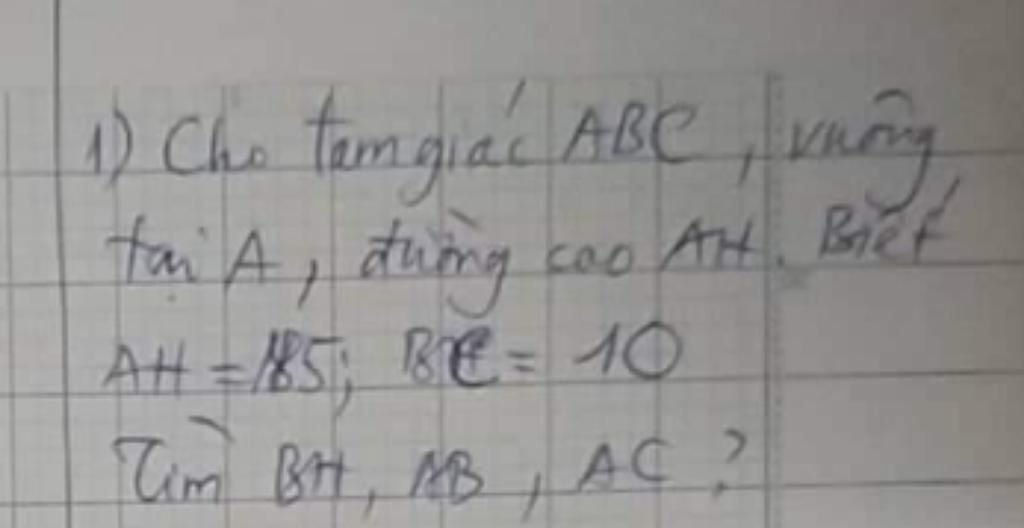 1) Cho tam giác ABC, vuông
tại A, đường cao AH. Biết
AH = 185; BC = 10
Tìm BH, AB, AC?